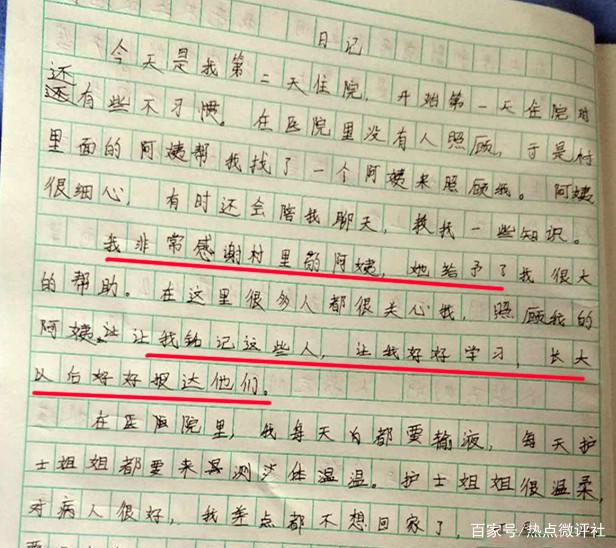 日记
今天是我第二天住院，开始第一天住院时
还有些不习惯。在医院里没有人照顾，于是村
里面的阿姨帮我找了一个阿姨来照顾我。阿姨
很细心，有时还会陪我聊天，教我一些知识。
我非常感谢村里的阿姨，她给予了我很大
的帮助。在这里很多人都很关心我，照顾我的
阿姨让让我铭记这些人，让我好好学习，长大
以后好好报达他们。
在医院里，我每天为都要输液，每天护
士姐姐都要来测体温温。护士姐姐很温柔，
对病人很好，我差点都不想回家了，
百家号/热点微评社